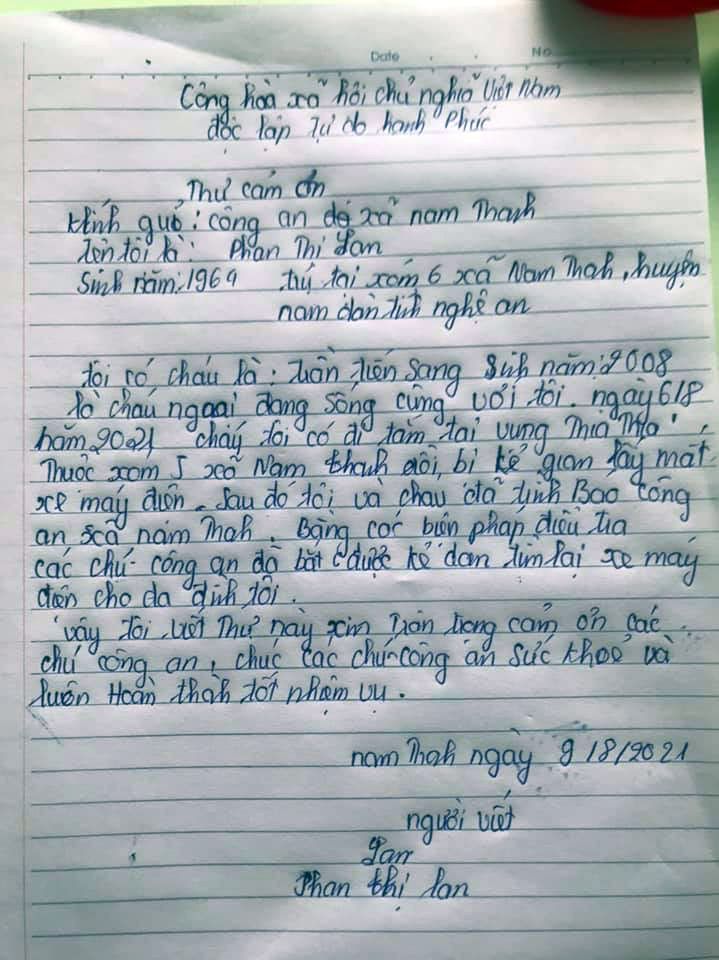 Date No
Cộng hoà xã hội chủ nghĩa Việt Nam
độc lập Tự do hạnh Phúc
Thư cảm ơn
kính gưở: công an độ xã nam Thanh
Tên tôi là: Phan Thị Lan
Sinh năm: 1964 trú tại xóm 6 xã Nam Thah, huyện
nam đàn tỉnh nghệ an
tôi có cháu là: trần tiến sang Sinh năm: 2008
là cháu ngoại đang sống cùng với tôi. ngày 6/8
năm 2021 cháy tôi có đi tắm tại vung Thia Thia
Thuộc xom 5 xã Nam thanh rồi, bị kẻ gian lấy mất
xe máy điện. Sau đó tôi và chau đã trình Báo công
an xã nam Thah. Bằng các biện pháp điều tra
các chú công an đã bắt được kẻ dan tìm lại xe máy
điện cho da đình tôi.
vậy tôi viết Thư này xin trân trọng cảm ơn các
chú công an, chúc các chú công an sức khoẻ và
luôn Hoàn thàh tốt nhiệm vụ.
nam Thah ngày 9/8/2021
người viết
Lan
Phan thị lan